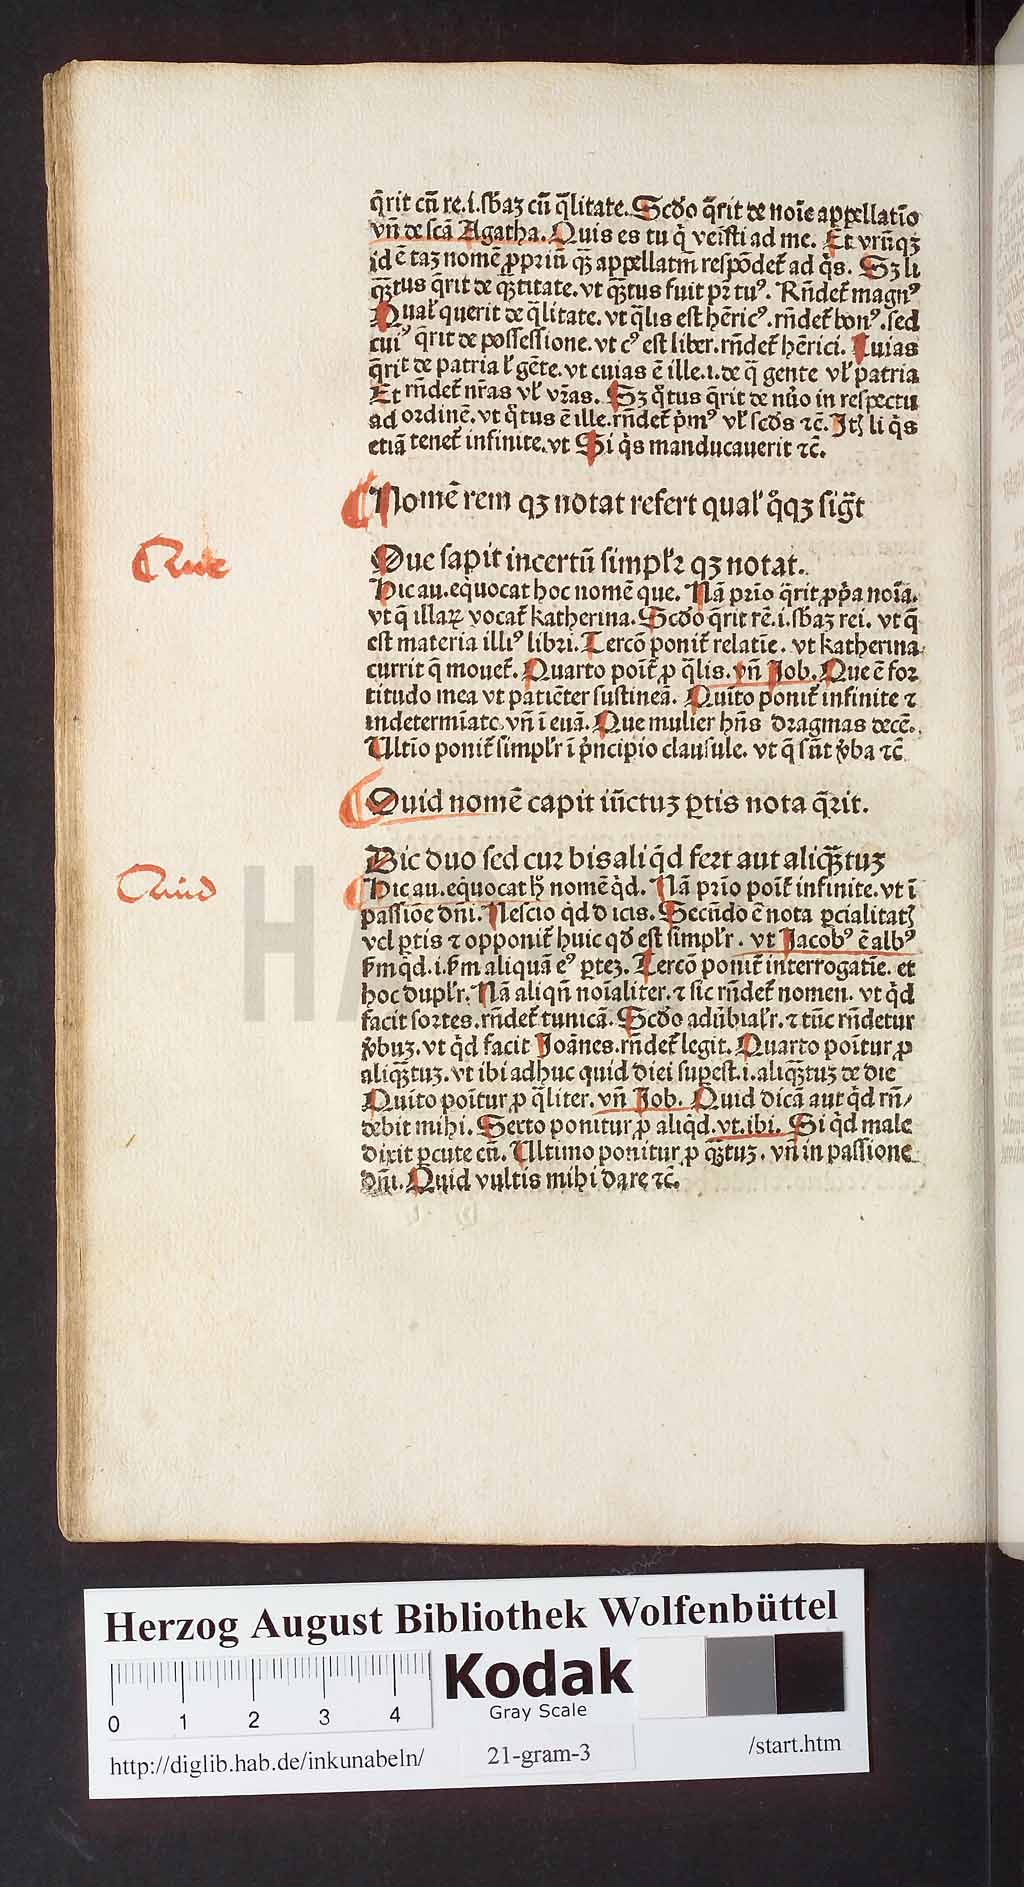 q̄rit cū re.i.sb̄aꝫ cū q̄litate. Scd̄o q̄rit de noīe appellatīo
vn̄ de scā Agatha. Quis es tu q̇ veīsti ad me. Et vtrūqꝫ
id ē taꝫ nomē ꝓpriū qꝫ̄ appellatīn respōdet̄ ad q̇s. Sꝫ li
qꝫ̄tus q̄rit de qꝫ̄titate. vt qꝫ̄tus fuit pr̄ tuꝰ. Rn̄det̄ magnꝰ
Qual̄ querit de q̄litate. vt q̄lis est hēricꝰ. rn̄det̄ bonꝰ. sed
cuiꝰ q̄rit de possessione. vt cꝰ est liber. rn̄det̄ hērici. Cuias
q̄rit de patria l̄ gēte. vt cuias ē ille.i. de q̄ gente vl̄ patria
Et rn̄det̄ nr̄as vl̄ vr̄as. Sꝫ q̊tus q̄rit de nūo in respectu
ad ordinē. vt q̊tus ē ille. rn̄det̄ ṗmꝰ vl̄ scd̄s ⁊c̄. Itꝫ li q̇s
etiā tenet̄ infinite. vt Si q̇s manducauerit ⁊c̄.
Nomē rem qꝫ notat refert qual̄ q̊qꝫ sig̅t
Que
Que sapit incertū simpl̄r qꝫ notat.
Hic au. eq̇uocat hoc nomē que. Nā prīo q̄rit ꝓp̄a noīa.
vt q̄ illaꝝ vocat̄ katherina. Scd̄o q̄rit rē.i.sb̄aꝫ rei. vt q̄
est materia illiꝰ libri. Tercō ponit̄ relatīe. vt katherina
currit q̄ mouet̄. Quarto poīt̄ ꝓ q̄lis. vn̄ Job. Que ē for
titudo mea vt patiēter sustineā. Quīto ponit̄ infinite ⁊
indetermīate. vn̄ ī euā. Que mulier hn̄s dragmas decē.
Ultīo ponit̄ simpl̄r ī ṗncipio clausule. vt q̄ sūt v̄ba ⁊c̄
Quid nomē capit iūctuꝫ ꝑtis nota q̄rit.
Quid
Hic duo sed cur bis aliq̇d fert aut aliqꝫ̄tuꝫ
Hic au. eq̇uocat h̄ nomē q̇d. Nā prīo poīt̄ infinite. vt ī
passiōe dn̄i. Nescio q̇d dicis. Secūdo ē nota ꝑcialitatꝫ
vel ꝑtis ⁊ opponit̄ huic qd̄ est simpl̄r. vt Jacobꝰ ē albꝰ
ẜm q̇d.i.ẜm aliquā eꝰ ꝑteꝫ. Tercō ponit̄ interrogatīe. et
hoc dupl̄r. Nā aliqn̄ noīaliter. ⁊ sic rn̄det̄ nomen. vt q̇d
facit sortes. rn̄det̄ tunicā. Scd̄o adūbial̄r. ⁊ tūc rn̄detur
v̄buꝫ. vt q̇d facit Joānes. rn̄det̄ legit. Quarto poītur ꝓ
aliqꝫ̄tuꝫ. vt ibi adhuc quid diei supest.i.aliqꝫ̄tuꝫ de die
Quīto poītur ꝓ q̄liter. vn̄ Job. Quid dicā aut q̇d rn̄/
debit mihi. Sexto ponitur ꝓ aliq̇d. vt. ibi. Si q̇d male
dixit ꝑcute eū. Ultimo ponitur ꝓ qꝫ̄tuꝫ. vn̄ in passione
dn̄i. Quid vultis mihi dare ⁊c̄.
HAB
Herzog August Bibliothek Wolfenbüttel
Kodak
Gray Scale
0 1 2 3 4
http://diglib.hab.de/inkunabeln/ 21-gram-3 /start.htm